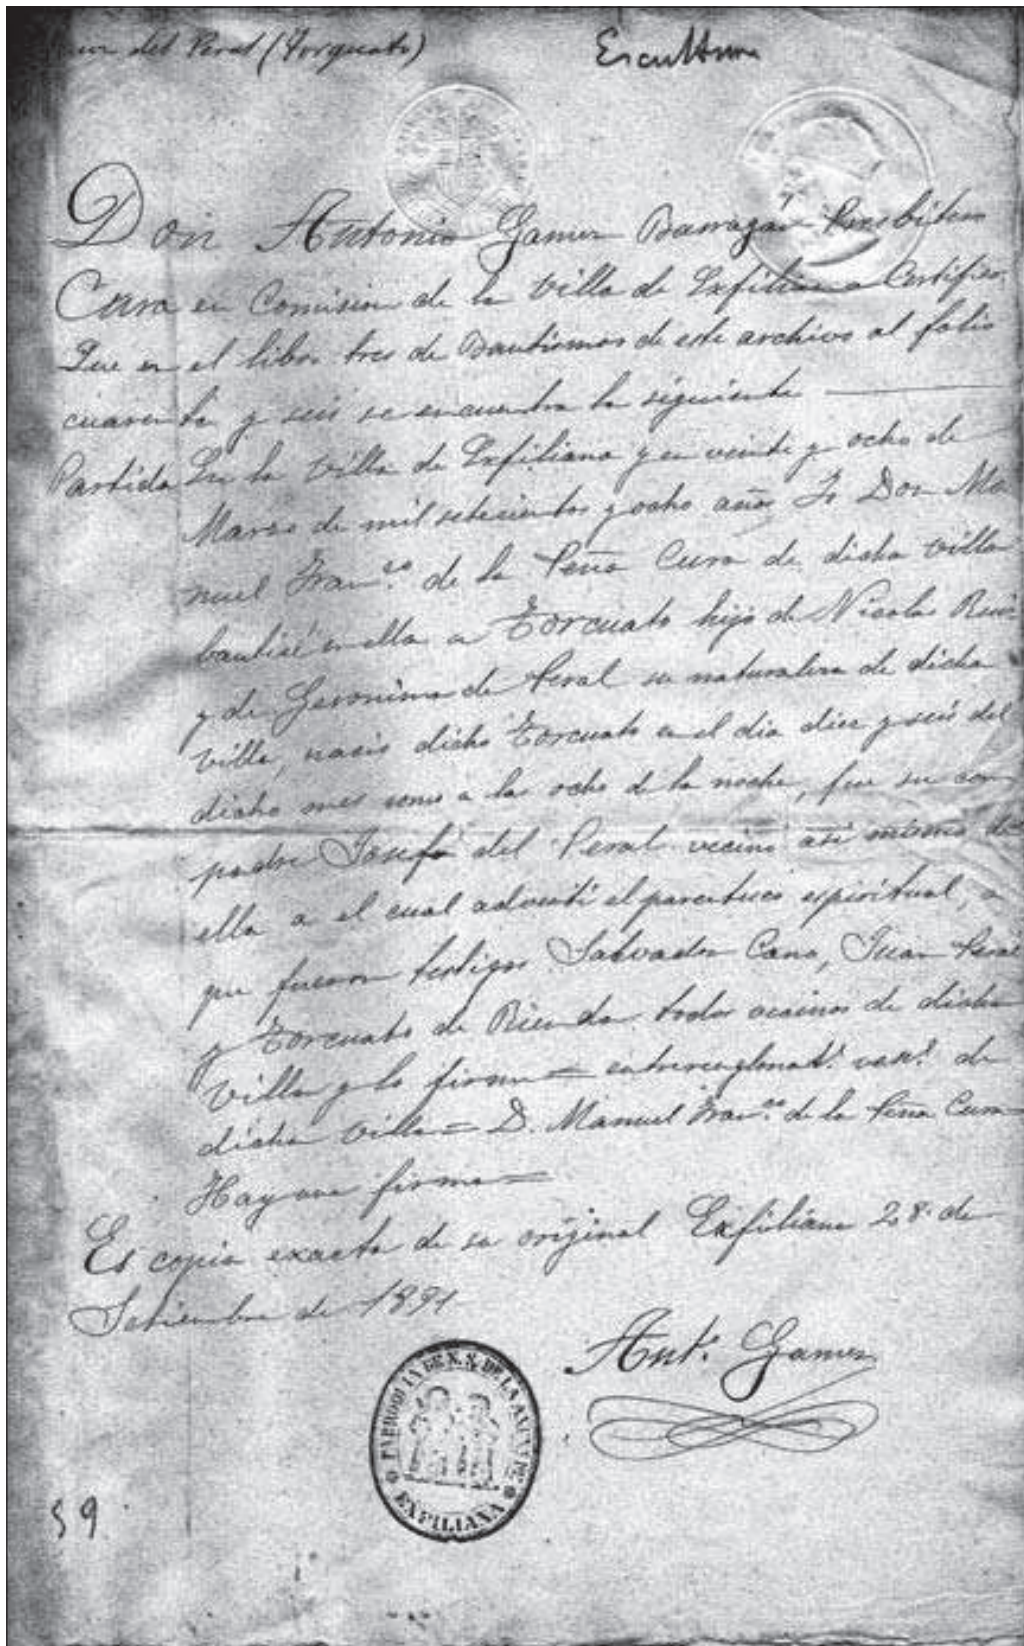 del Peral (Torquato) Escultura
Don Antonio Gamez Barragán Presbitero
Cura en Comision de la Villa de Exfiliana Certifico:
Que en el libro tres de Bautismos de este archivo al folio
cuarenta y seis se encuentra la siguiente
Partida En la Villa de Exfiliana y en veinte y ocho de
Marzo de mil setecientos y ocho años Yo Don Ma
nuel Fran.co de la Peña Cura de dicha villa
bautisé en ella a Torcuato hijo de Nicolas Ruiz
y de Geronima de Peral su naturaleza de dicha
Villa, nació dicho Torcuato en el dia diez y seis del
dicho mes como a las ocho de la noche, fue su com
padre Josefo del Peral vecino asi mismo de
ella a el cual advertí el parentesco espiritual, a
que fueron testigos Salvador Cano, Juan Peral
y Torcuato de Rienda todos vecinos de dicha
Villa y lo firme = de
dicha villa = D. Manuel Fran.co de la Peña Cura =
Hay una firma =
Es copia exacta de su original Exfiliana 28 de
Setiembre de 1891
Ant.o Gamez
PARROQUIA DE N. S. DE LA ANUNC.
EXFILIANA
59